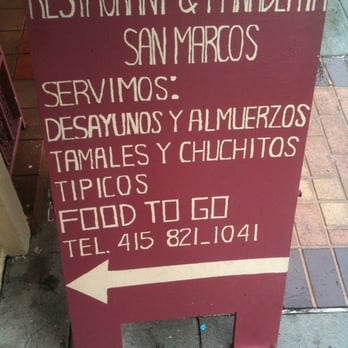 RESTAURANT & PANADERIA
SAN MARCOS
SERVIMOS:
DESAYUNOS Y ALMUERZOS
TAMALES Y CHUCHITOS
TIPICOS
FOOD TO GO
TEL. 415 821-1041